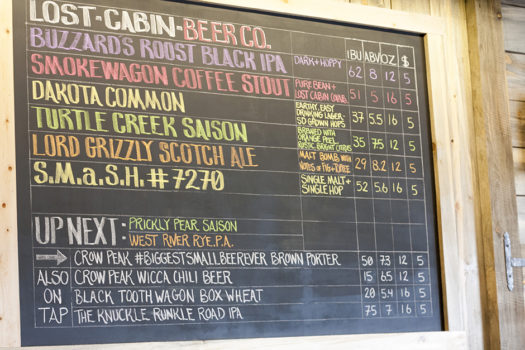 LOST-CABIN-BEER CO. IBU ABV OZ $
BUZZARDS ROOST BLACK IPA DARK+HOPPY 62 8 12 5
SMOKEWAGON COFFEE STOUT PURE BEAN+ LOST CABIN 51 5 16 5
DAKOTA COMMON EARTHY, EASY DRINKING LAGER- SD GROWN HOPS 37 5.5 16 5
TURTLE CREEK SAISON BREWED WITH ORANGE PEEL RUSTIC, BRIGHT CITRUS 35 7.5 12 5
LORD GRIZZLY SCOTCH ALE MALT BOMB WITH NOTES OF FIG+TOFFEE 29 8.2 12 5
S.M.a.S.H. # 7270 SINGLE MALT+ SINGLE HOP 52 5.6 16 5
UP NEXT: PRICKLY PEAR SAISON
WEST RIVER RYE.P.A.
CROW PEAK #BIGGESTSMALLBEEREVER BROWN PORTER 50 7.3 12 5
ALSO CROW PEAK WICCA CHILI BEER 15 6.5 12 5
ON BLACK TOOTH WAGON BOX WHEAT 20 5.4 16 5
TAP THE KNUCKLE RUNKLE ROAD IPA 75 7 16 5